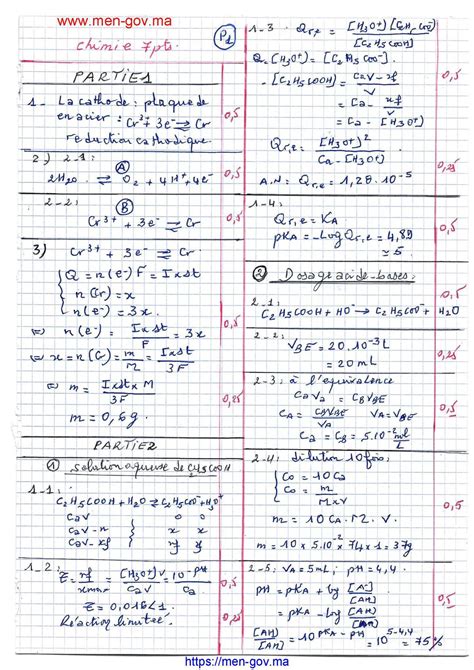 www.men-gov.ma
P1
Chimie 7pts.
PARTIE 1
1- La cathode : plaque de
en acier : Cr³⁺ + 3e⁻ ⇌ Cr
réduction cathodique.
0,5
2) 2-1:
A
2H₂O ⇌ O₂ + 4H⁺ + 4e⁻
0,5
2-2:
B
Cr³⁺ + 3e⁻ ⇌ Cr
0,5
3) Cr³⁺ + 3e⁻ ⇌ Cr
Q = n(e⁻) F = I×Δt
n(Cr) = x
n(e⁻) = 3x.
⇔ n(e⁻) = I×Δt/F = 3x
0,5
⇔ x = n(Cr) = m/M = I×Δt/3F
⇔ m = I×Δt×M/3F
0,25
m = 0,6g.
PARTIE 2
① Solution aqueuse de C₂H₅COOH
1-1:
C₂H₅COOH + H₂O ⇌ C₂H₅COO⁻ + H₃O⁺
CaV 0 0
CaV-x x x
CaV-xf xf xf
0,5
1-2:
τ = xf/xmax = [H₃O⁺]V/CaV = 10^-pH/Ca
0,5
τ = 0,016 < 1
Réaction limitée.
0,25
1-3 Qr,e = [H₃O⁺][C₂H₅COO⁻]/[C₂H₅COOH]
[H₃O⁺] = [C₂H₅COO⁻].
[C₂H₅COOH] = CaV-xf/V
0,5
= Ca - xf/V
= Ca - [H₃O⁺]
Qr,e = [H₃O⁺]²/Ca-[H₃O⁺]
0,25
A.N: Qr,e = 1,28.10⁻⁵
1-4:
Qr,e = KA
pKA = -log Qr,e = 4,89
≃ 5
0,5
② Dosage acide-bases:
0,5
2-1:
C₂H₅COOH + HO⁻ → C₂H₅COO⁻ + H₂O
2-2:
VBE = 20.10⁻³L
= 20mL
0,25
2-3: à l'équivalence
CaVa = CBVBE
CA = CBVBE/VA
0,5
Ca = CB = 5.10⁻² mol/L
2-4: dilution 10 fois:
C0 = 10Ca
C0 = m/M×V
m = 10Ca.M.V
0,5
m = 10 × 5.10⁻² × 74 × 1 = 37g
2-5: VA = 5mL; pH = 4,4.
0,5
pH = pKA + log [A⁻]/[AH]
= pKA - log [AH]/[A⁻]
[AH]/[AH] = 10^pKA-pH = 10^5-4,4 = 75%
https://men-gov.ma